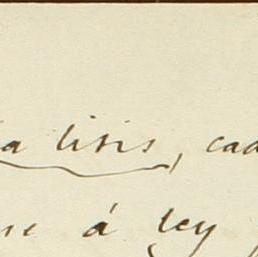 a lisis, cad
se á ley